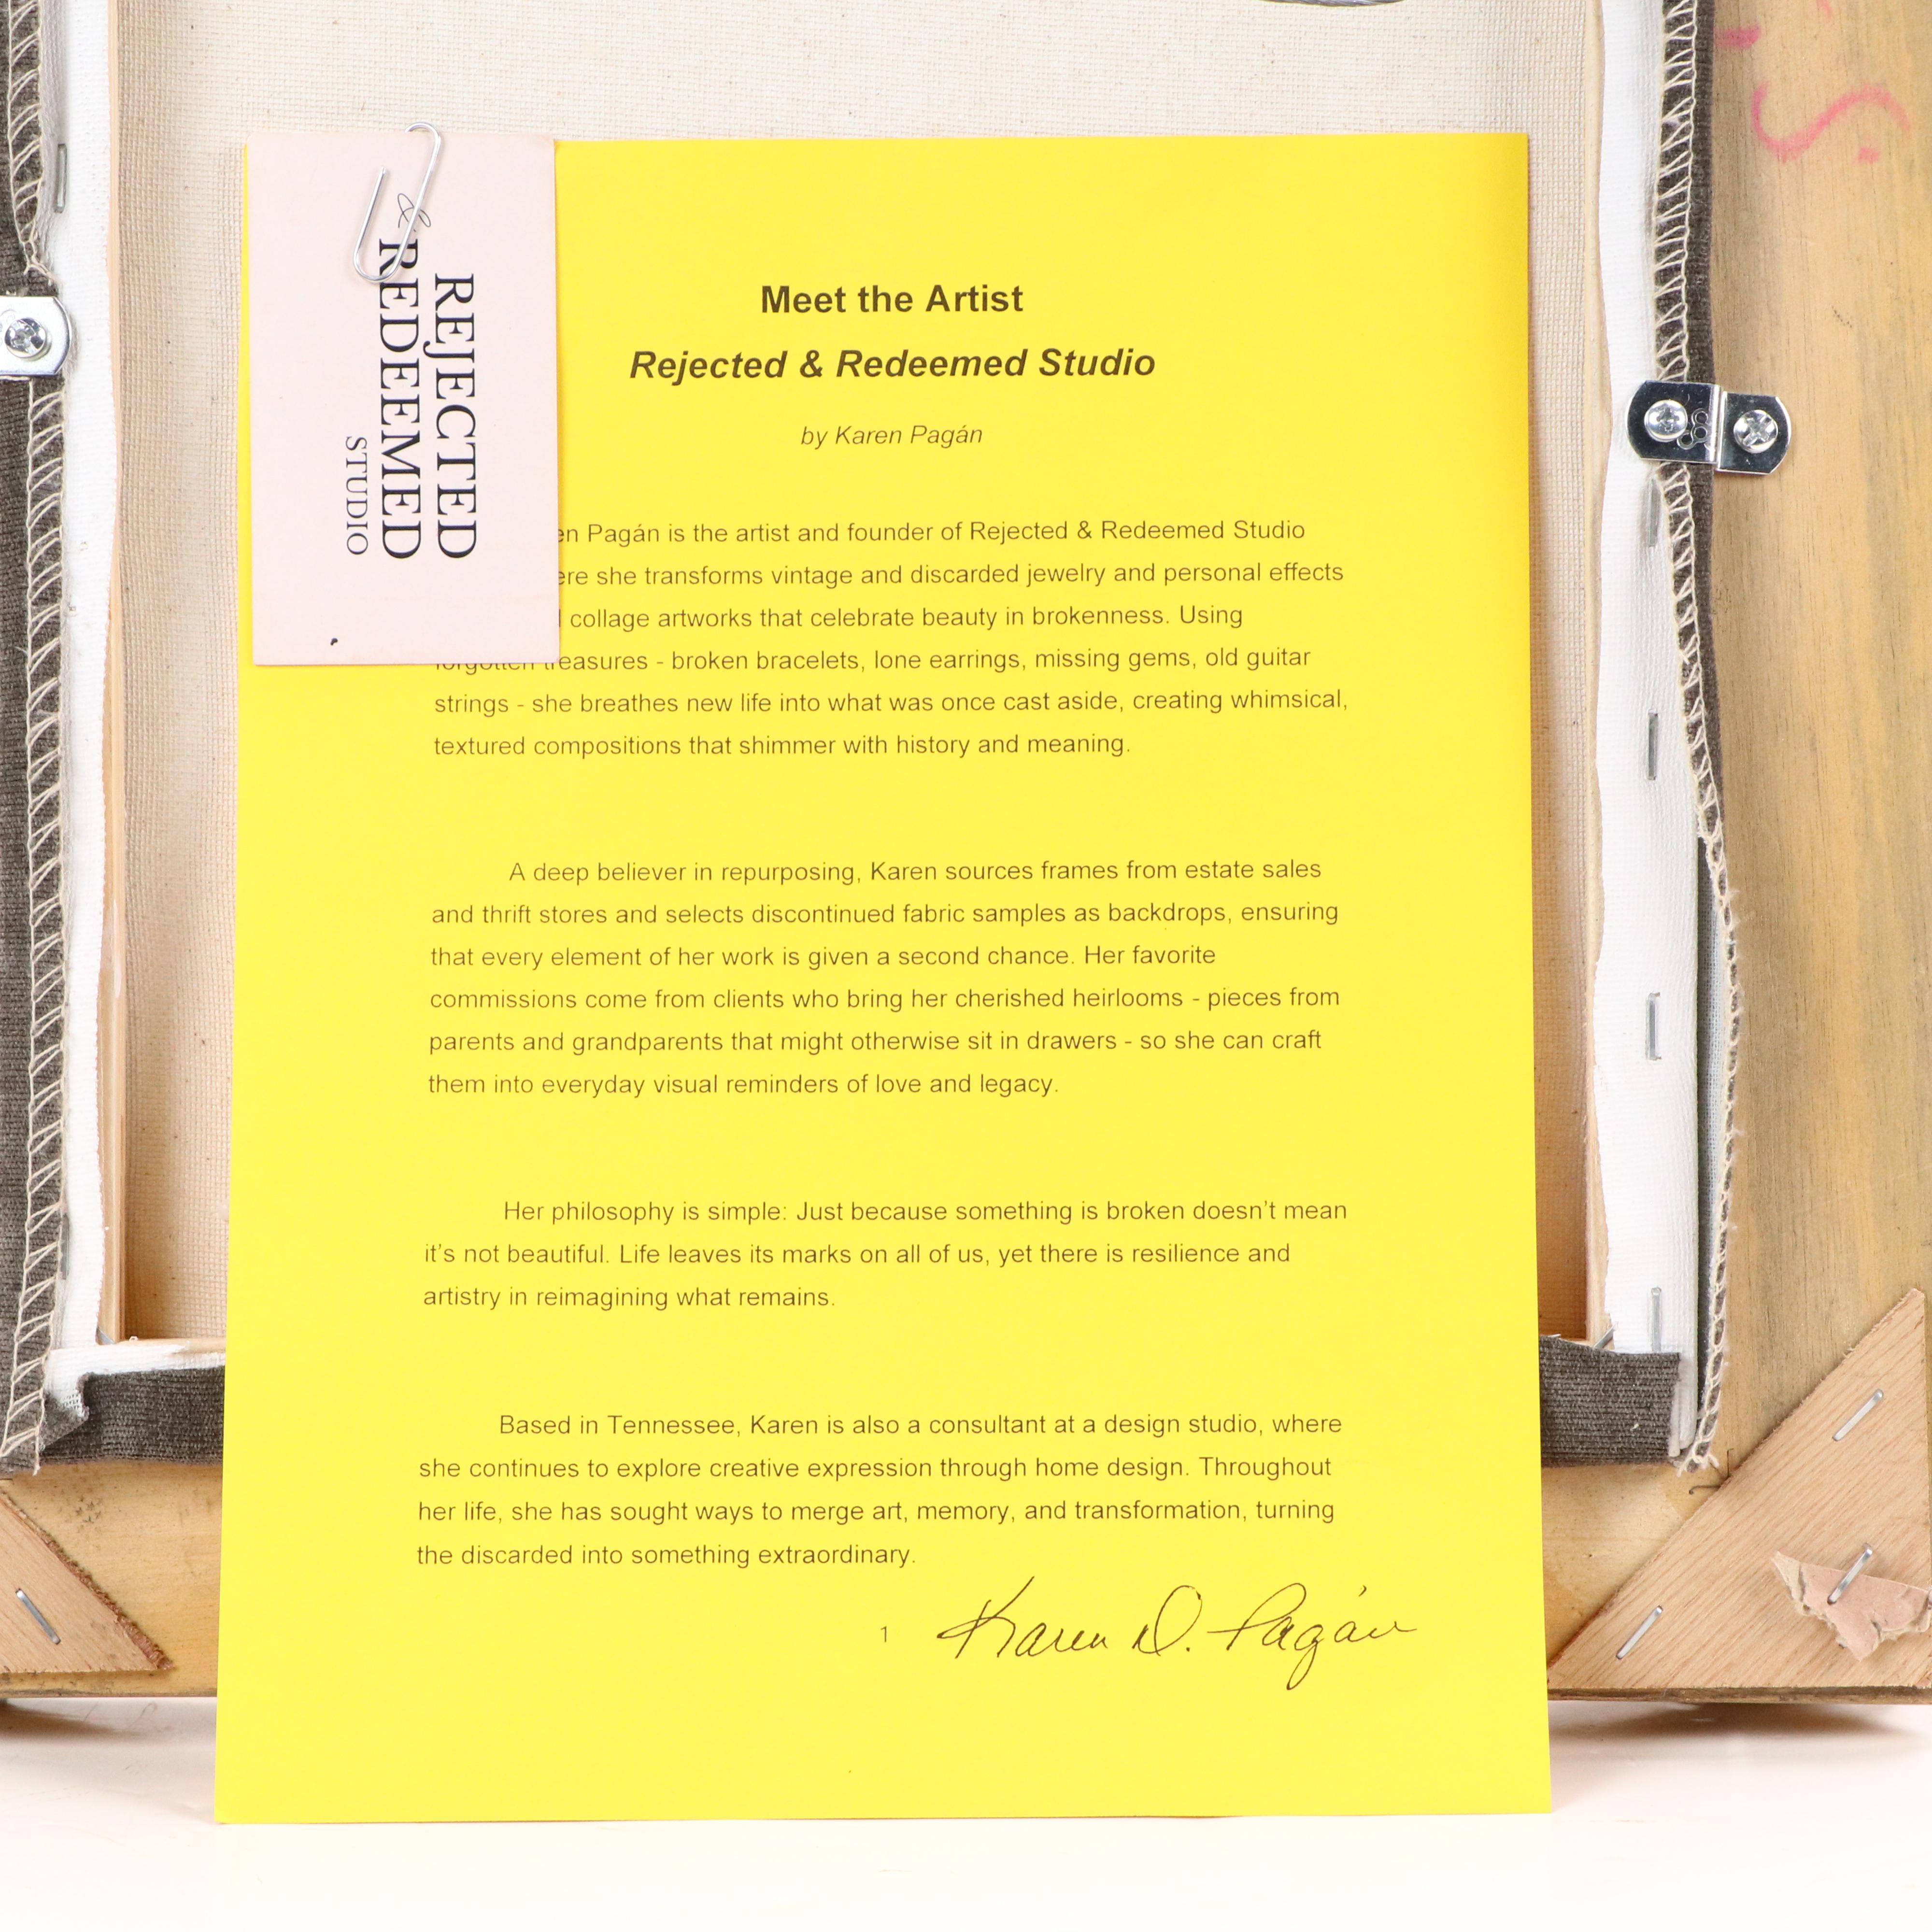 REJECTED
& REDEEMED
STUDIO
Meet the Artist
Rejected & Redeemed Studio
by Karen Pagán
en Pagán is the artist and founder of Rejected & Redeemed Studio
ere she transforms vintage and discarded jewelry and personal effects
collage artworks that celebrate beauty in brokenness. Using
forgotten treasures - broken bracelets, lone earrings, missing gems, old guitar
strings - she breathes new life into what was once cast aside, creating whimsical,
textured compositions that shimmer with history and meaning.
A deep believer in repurposing, Karen sources frames from estate sales
and thrift stores and selects discontinued fabric samples as backdrops, ensuring
that every element of her work is given a second chance. Her favorite
commissions come from clients who bring her cherished heirlooms - pieces from
parents and grandparents that might otherwise sit in drawers - so she can craft
them into everyday visual reminders of love and legacy.
Her philosophy is simple: Just because something is broken doesn’t mean
it’s not beautiful. Life leaves its marks on all of us, yet there is resilience and
artistry in reimagining what remains.
Based in Tennessee, Karen is also a consultant at a design studio, where
she continues to explore creative expression through home design. Throughout
her life, she has sought ways to merge art, memory, and transformation, turning
the discarded into something extraordinary.
1
Karen D. Pagán